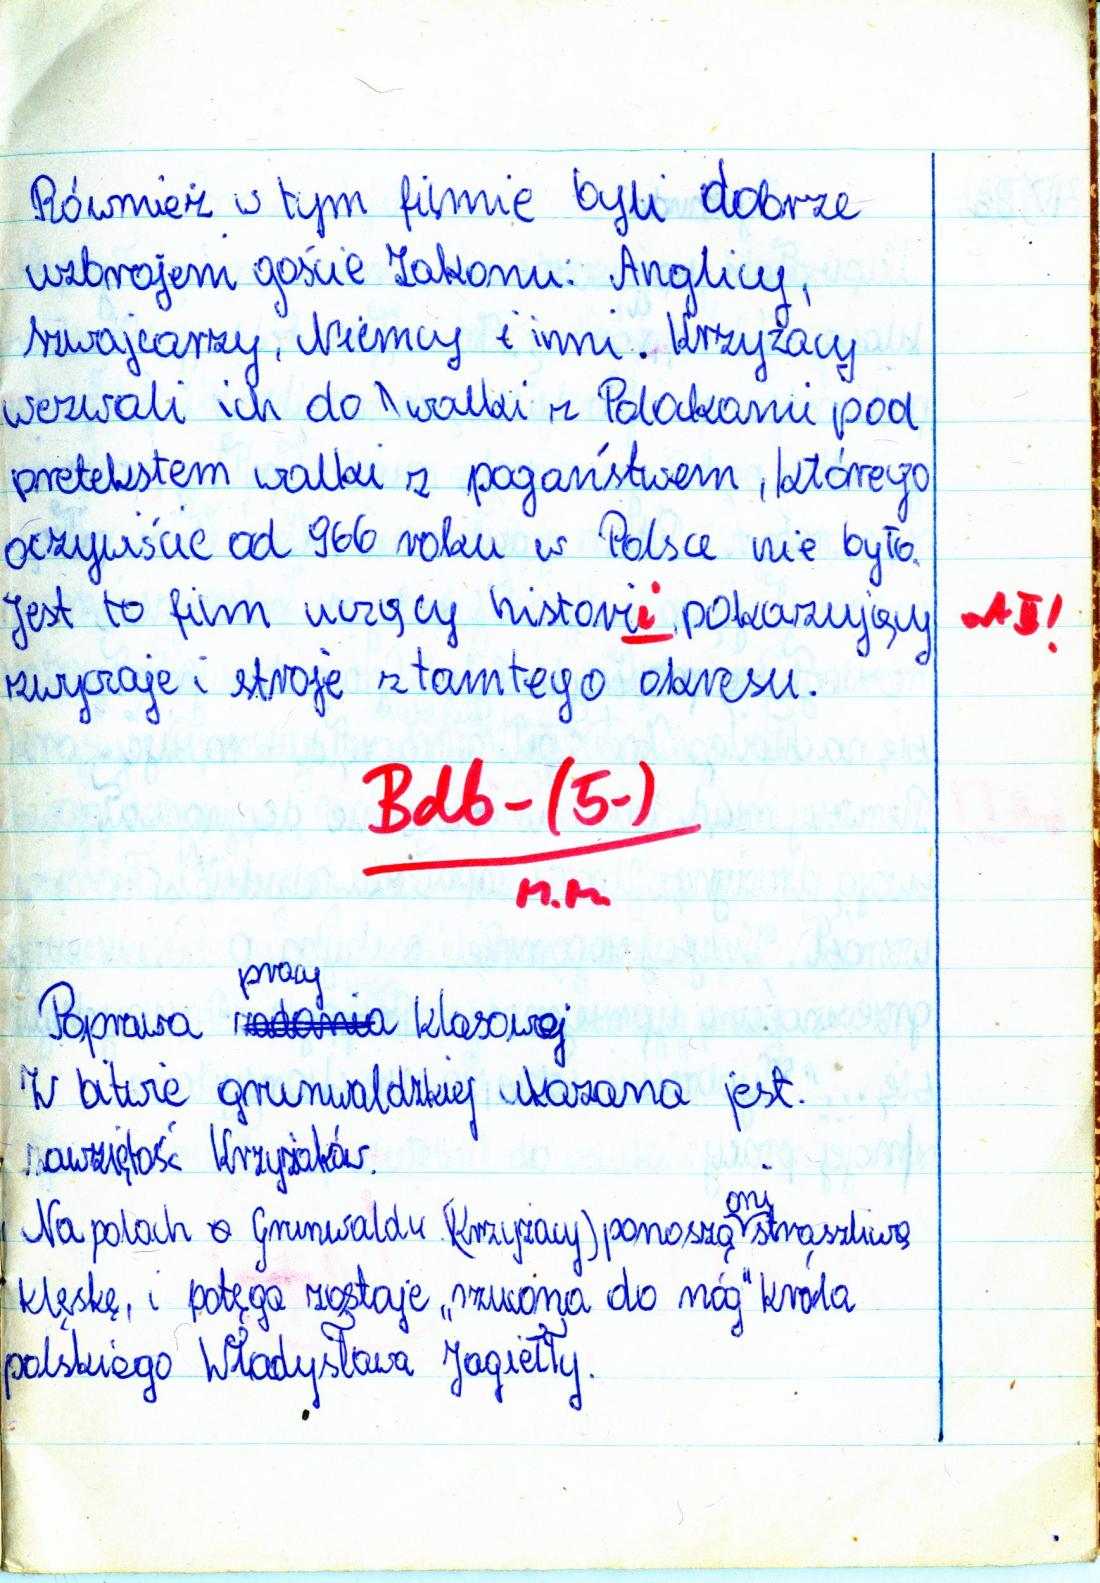 Również w tym filmie byli dobrze
uzbrojeni goście Zakonu: Anglicy,
Szwajcarzy, Niemcy i inni. Krzyżacy
wezwali ich do walki z Polakami pod
pretekstem walki z pogaństwem, którego
oczywiście od 966 roku w Polsce nie było.
Jest to film uczący historii, pokazujący
zwyczaje i stroje z tamtego okresu.
Bdb-(5-)
pracy
Poprawa zadania klasowej
W bitwie grunwaldzkiej ukazana jest.
zawziętość Krzyżaków.
oni
Na polach Grunwaldu (Krzyżacy) ponoszą straszliwą
klęskę, i potęga zostaje „rzucona do nóg" króla
polskiego Władysława Jagiełły.